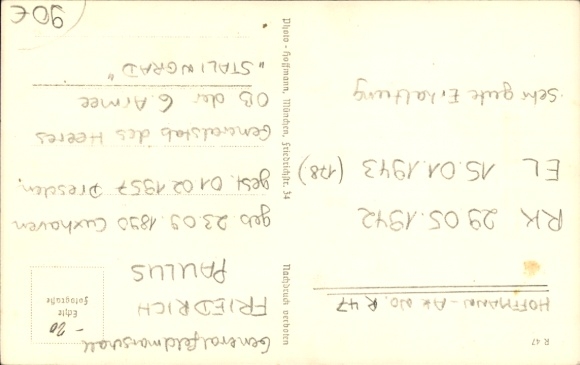 R 47
HOFFMANN - AK NO. R 47
RK 26.08.1942
EL 15.01.1943 (178)
Sehr gute Erhaltung
Photo-Hoffmann, München, Friedrichstr. 34
Nachdruck verboten
Echte
Fotografie
-20
Generalfeldmarschall
FRIEDRICH
PAULUS
geb. 23.09.1890 Cuxhaven
gest. 01.02.1957 Dresden.
Generalstab des Heeres
OB der 6. Armee
"STALINGRAD"
90€